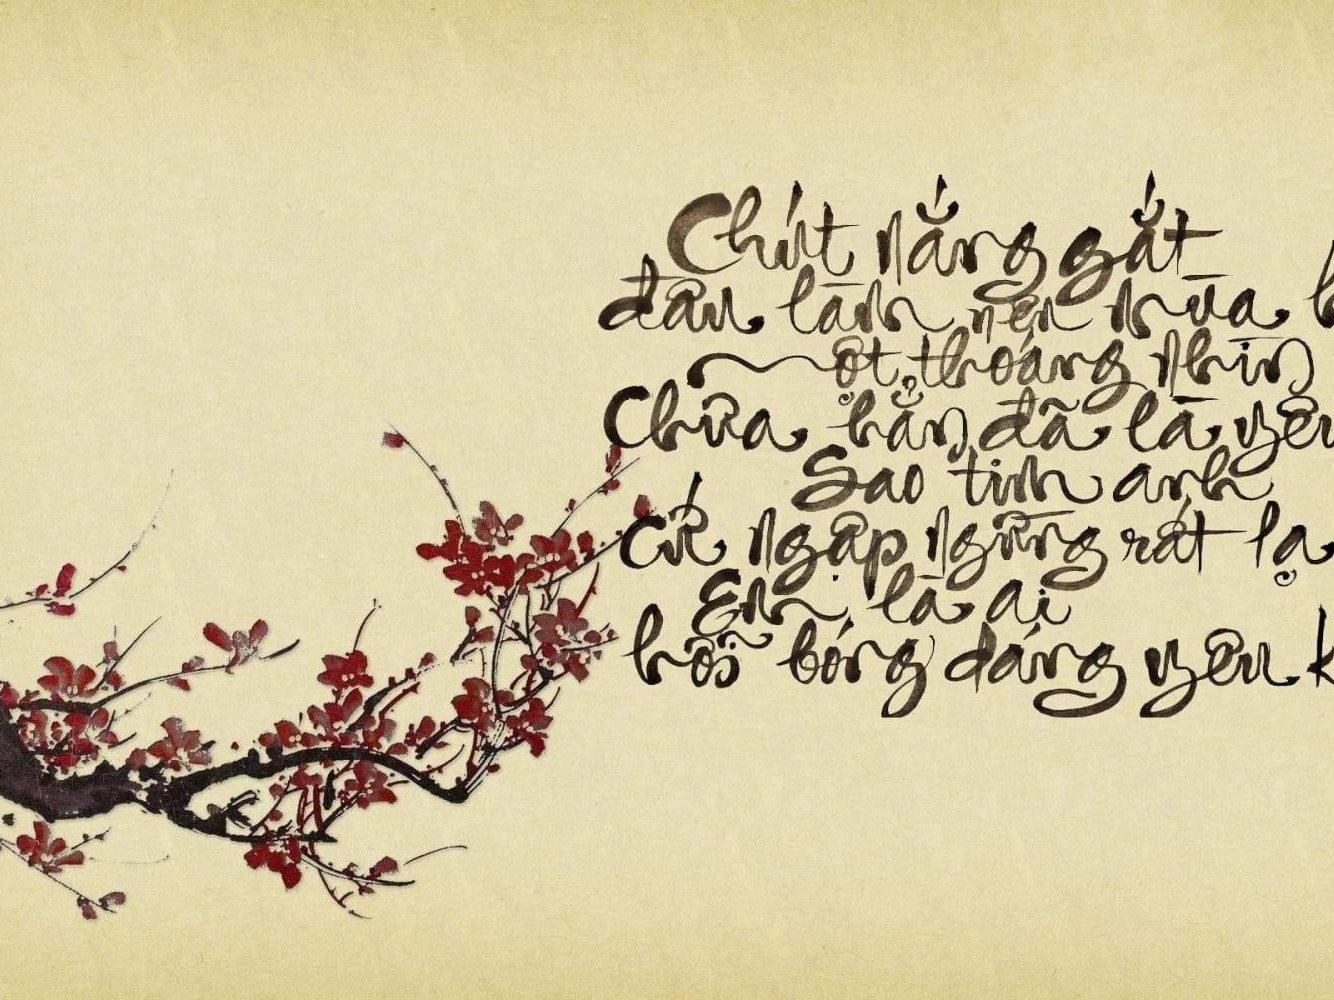 Chút nắng gắt
đâu làm nên mùa h
một thoáng nhìn
Chưa hẳn đã là yêu
Sao tim anh
cứ ngập ngừng rất lạ
Em là ai
hỡi bóng dáng yêu k